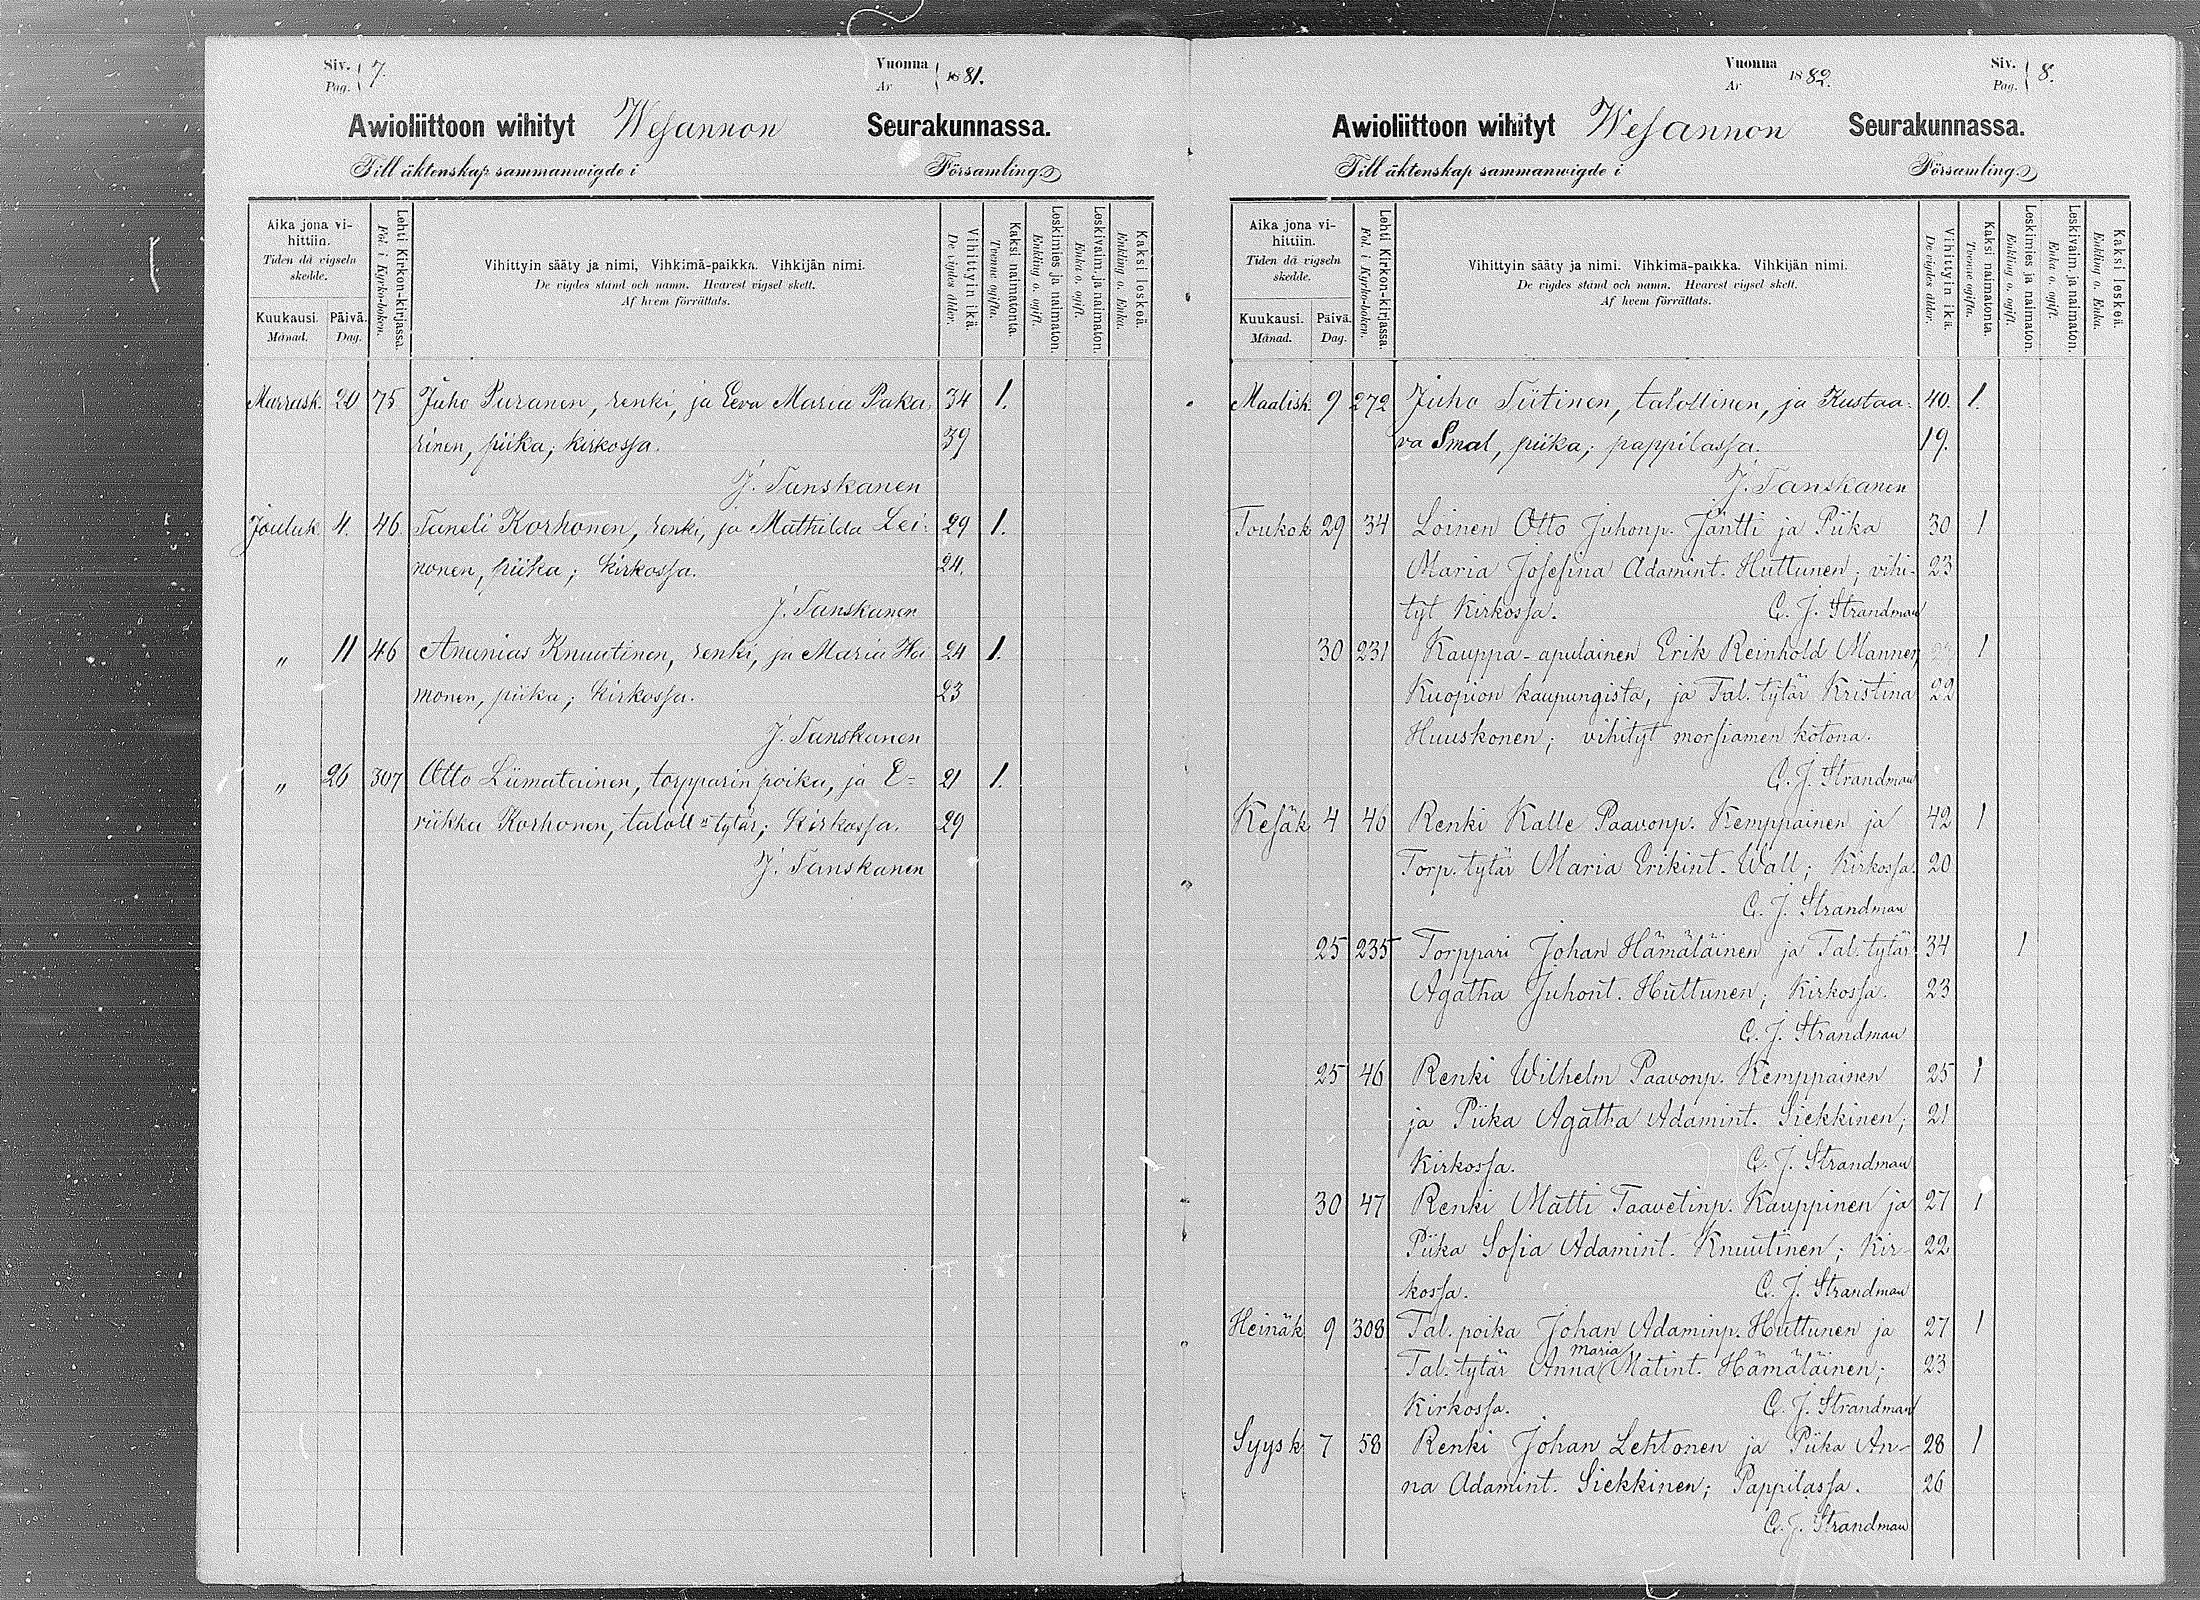 Siv. 7.
Pag.
Vuonna 1881.
År
Awioliittoon wihityt Wesannon Seurakunnassa.
Till äktenskap sammanwigde i Församling
Aika jona vihittiin.
Tiden då vigseln skedde.
Kuukausi. Månad.
Päivä. Dag.
Lehti Kirkon-kirjassa.
Fol. i Kyrko-boken.
Vihittyin sääty ja nimi, Vihkimä-paikka. Vihkijän nimi.
De vigdes stånd och namn. Hvarest vigsel skett.
Af hvem förrättats.
Vihittyin ikä.
De vigdes ålder.
Kaksi naimatonta.
Tvenne ogifta.
Leskimies ja naimaton.
Enkling o. ogift.
Leskivaim. ja naimaton.
Enka o. ogift.
Kaksi leskeä.
Enkling o. Enka.
Marrask. 20 75 Juho Puranen, renki, ja Eeva Maria Paka- 34 1.
rinen, piika; kirkossa. 39
J. Tanskanen
Jouluk 4. 46 Taneli Korhonen, renki, ja Mathilda Lei- 29 1.
nonen, piika; kirkossa. 24.
J. Tanskanen
" 11 46 Ananias Knuutinen, renki, ja Maria Ha 24 1.
monen, piika; kirkossa. 23
J. Tanskanen
" 26 307 Otto Liimatainen, torpparin poika, ja E= 21 1.
riikka Korhonen, taloll:n tytär; kirkossa. 29
J. Tanskanen
Vuonna 1882.
År
Siv. 8.
Pag.
Awioliittoon wihityt Wesannon Seurakunnassa.
Till äktenskap sammanwigde i Församling
Aika jona vihittiin.
Tiden då vigseln skedde.
Kuukausi. Månad.
Päivä. Dag.
Lehti Kirkon-kirjassa.
Fol. i Kyrko-boken.
Vihittyin sääty ja nimi. Vihkimä-paikka. Vihkijän nimi.
De vigdes stånd och namn. Hvarest vigsel skett.
Af hvem förrättats.
Vihittyin ikä.
De vigdes ålder.
Kaksi naimatonta.
Tvenne ogifta.
Leskimies ja naimaton.
Enkling o. ogift.
Leskivaim. ja naimaton.
Enka o. ogift.
Kaksi leskeä.
Enkling o. Enka.
Maalisk. 9 272 Juho Tiitinen, talollinen, ja Kustaa- 40. 1.
va Smal, piika; pappilassa. 19.
J. Tanskanen
Toukok 29 34 Loinen Otto Juhonp. Jäntti ja Piika 30 1
Maria Josefina Adamint. Huttunen; vihi- 23
tyt Kirkossa. C. J. Strandman
30 231 Kauppa-apulainen Erik Reinhold Manner 1
Kuopion kaupungista, ja Tal. tytär Kristina 22
Huuskonen; vihityt morsiamen kotona.
C. J. Strandman
Kesäk 4 46 Renki Kalle Paavonp. Kemppainen ja 42 1
Torp. tytär Maria Erikint. Wall; Kirkossa. 20
C. J. Strandman
25 235 Torppari Johan Hämäläinen ja Tal. tytär 34 1
Agatha Juhont. Huttunen; Kirkossa. 23
C. J. Strandman
25 46 Renki Wilhelm Paavonp. Kemppainen 25 1
ja Piika Agatha Adamint. Siekkinen; 21
Kirkossa. C. J. Strandman
30 47 Renki Matti Taavetinp. Kauppinen ja 27 1
Piika Sofia Adamint. Knuutinen; Kir- 22
kossa. C. J. Strandman
Heinäk 9 308 Tal. poika Johan Adaminp. Huttunen ja 27 1
Tal. tytär Anna Maria Matint. Hämäläinen; 23
Kirkossa. C. J. Strandman
Syysk 7 58 Renki Johan Lehtonen ja Piika An- 28 1
na Adamint. Siekkinen; Pappilassa. 26
C. J. Strandman